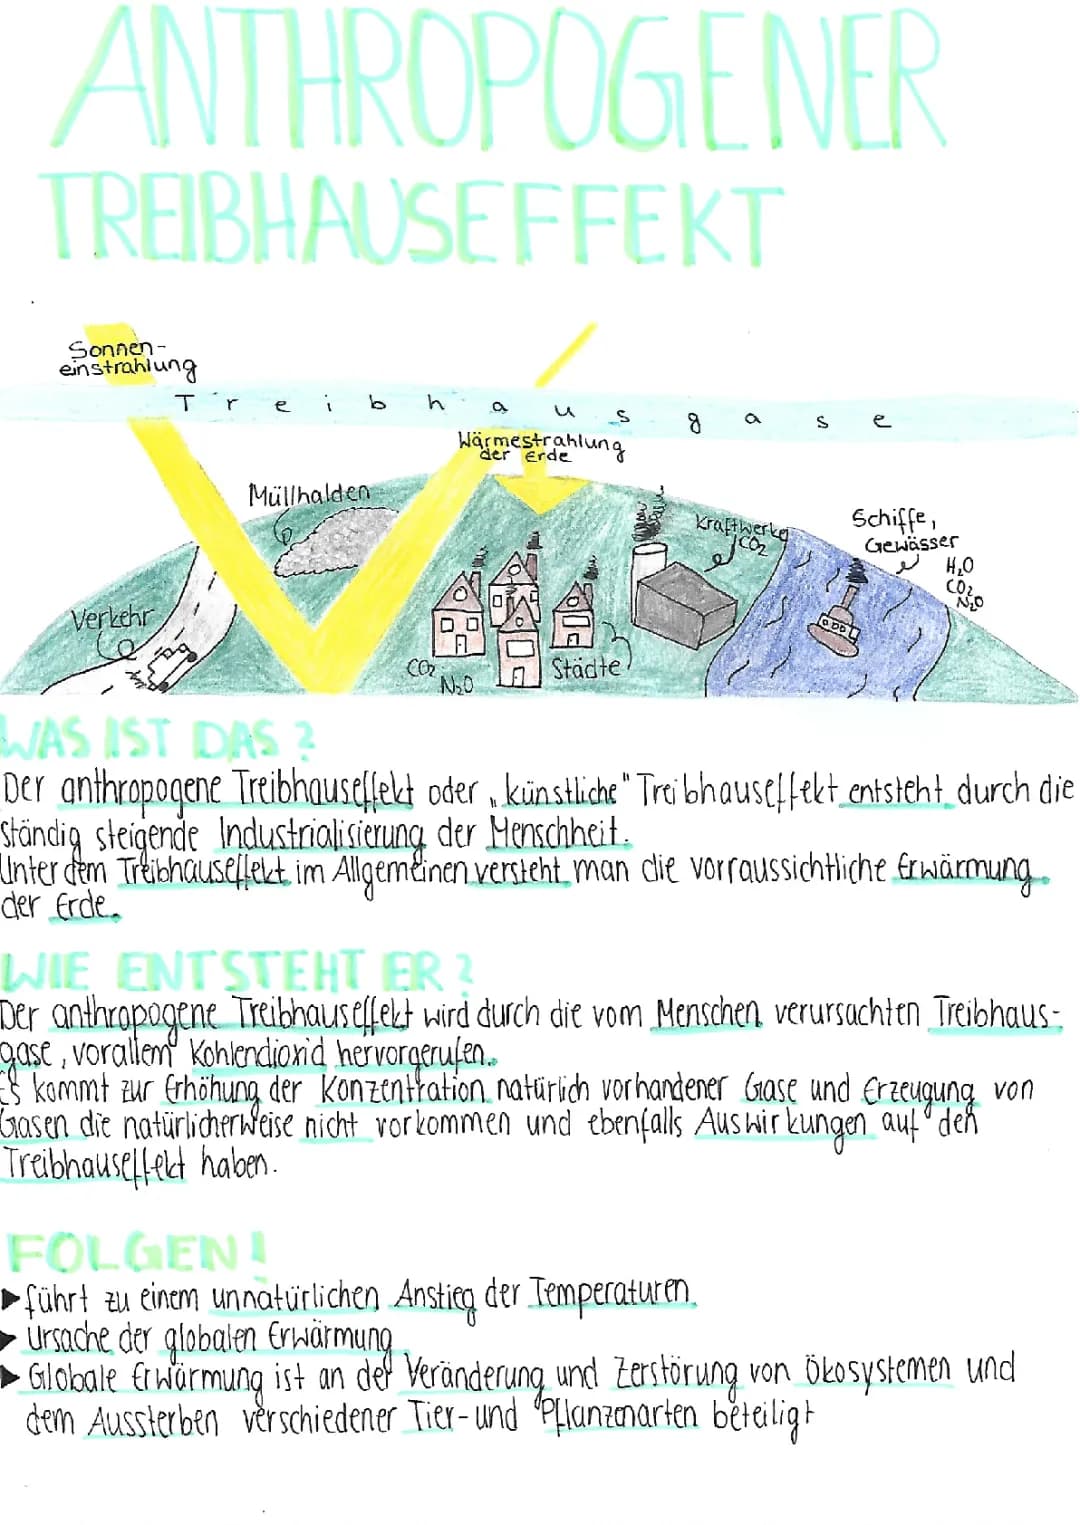 ANTHROPOGENER
TREIBHAUSEFFEKT
Sonnen-
einstrahlung
Treibhausgase
Wärmestrahlung
der Erde
Müllhalden
Kraftwerke
CO₂
Schiffe,
Gewässer
H₂O
CO₂
N₂O
Verkehr
CO₂
N₂O
Städte
WAS IST DAS?
Der anthropogene Treibhauseffekt oder „künstliche" Treibhauseffekt entsteht durch die
ständig steigende Industrialisierung der Menschheit.
Unter dem Treibhauseffekt im Allgemeinen versteht man die vorraussichtliche Erwärmung
der Erde.
WIE ENTSTEHT ER?
Der anthropogene Treibhauseffekt wird durch die vom Menschen verursachten Treibhaus-
gase, vorallem Kohlendioxid hervorgerufen.
Es kommt zur Erhöhung der Konzentration natürlich vorhandener Gase und Erzeugung von
Gasen die natürlicherweise nicht vorkommen und ebenfalls Auswirkungen auf den
Treibhauseffekt haben.
FOLGEN!
▶ führt zu einem unnatürlichen Anstieg der Temperaturen
▶ Ursache der globalen Erwärmung
▶ Globale Erwärmung ist an der Veränderung und Zerstörung von Ökosystemen und
dem Aussterben verschiedener Tier- und Pflanzenarten beteiligt